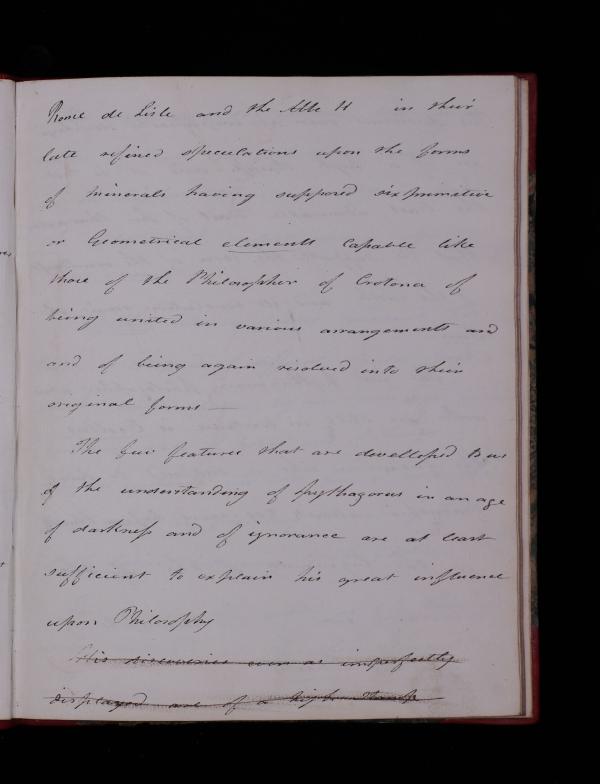 Rome de Lisle and the Abbe H in their
late refined speculations upon the forms
of minerals having supposed six primitive
or Geometrical elements capable like
those of the Philosopher of Crotona of
being united in various arrangements and
and of being again resolved into their
original forms —
The few features that are developped to us
of the understanding of Pythagoras in an age
of darkness and of ignorance are at least
sufficient to explain his great influence
upon Philosophy
His discoveries even as imperfectly
displayed are of a high stamp